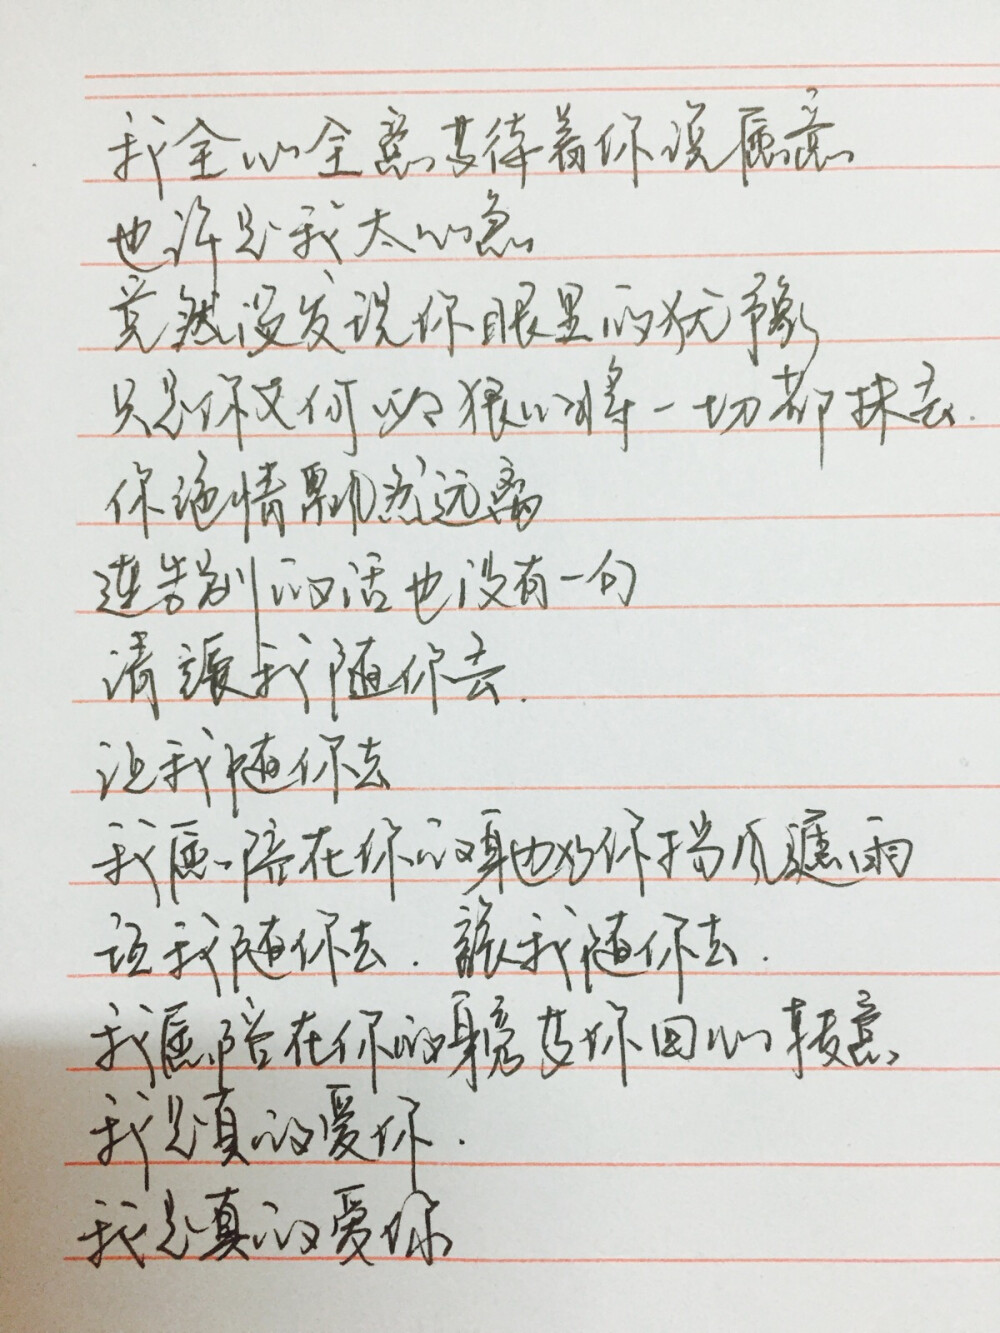 我全心全意等待着你说愿意
也许是我太心急
竟然没发现你眼里的犹豫
只是你又何必狠心将一切都抹去.
你绝情飘然远离
連告别的话也没有一句
请讓我随你去.
让我随你去
我愿陪在你的身也为你挡风遮雨
让我随你去.讓我随你去.
我愿陪在你的身旁等你回心转意
我是真的爱你.
我是真的爱你